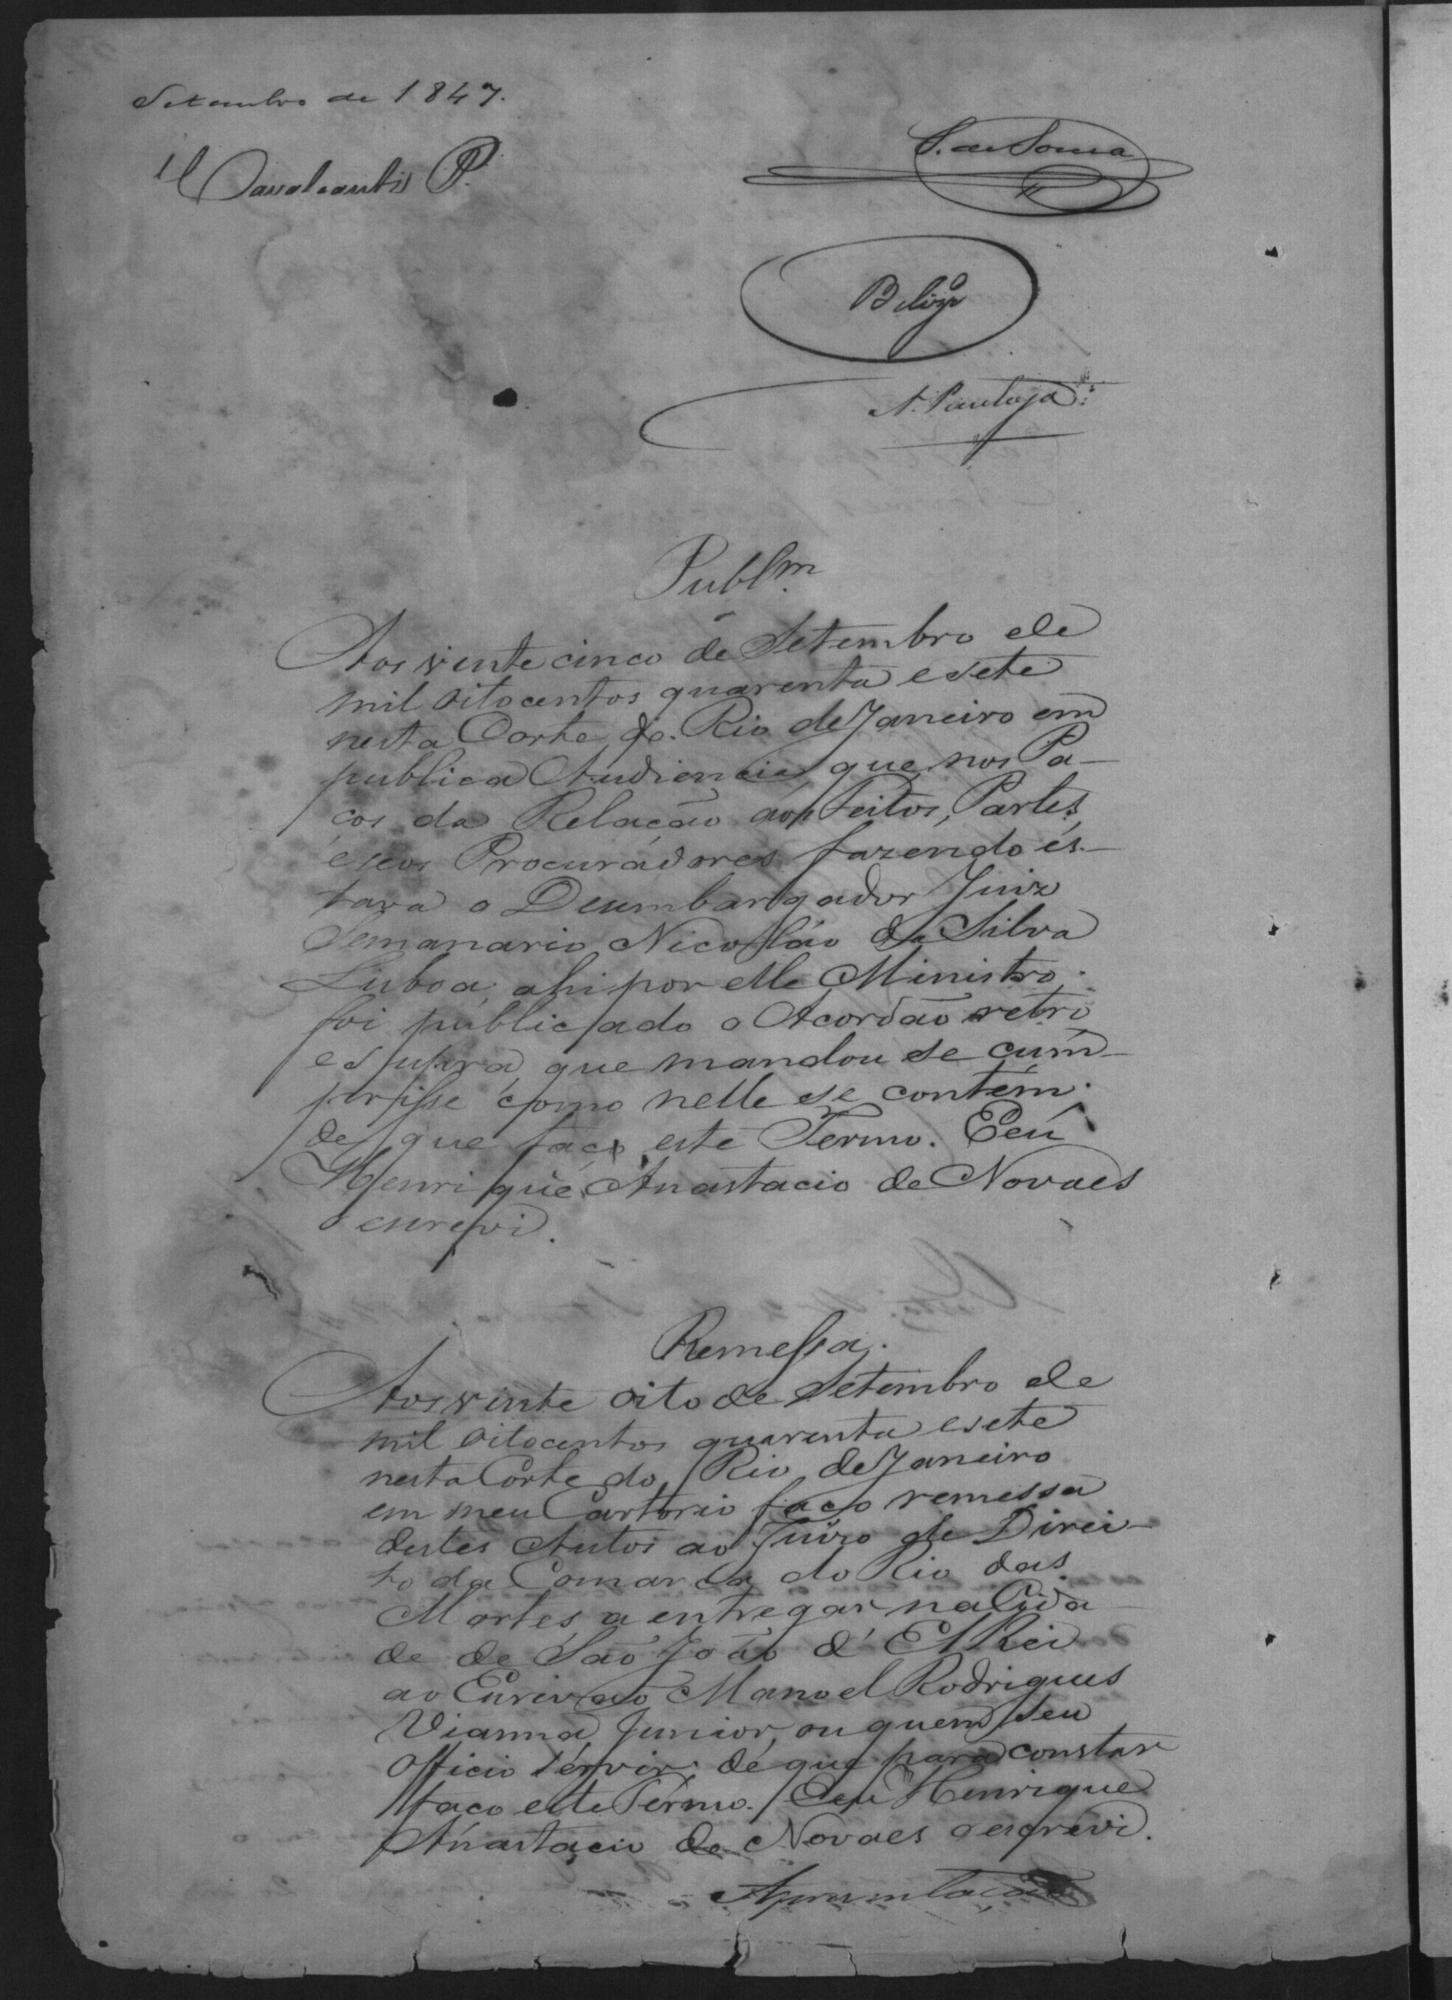 Setembro de 1847.
Cavalcanti P.
S. de Souza
N. Pantoja
Publm.
Aos vinte cinco de Setembro de
mil oitocentos quarenta e sete
nesta Corte do Rio de Janeiro em
publica Audiencia que nos Pa-
ços da Relação aos Feitos, Partes,
e seos Procuradores fazendo es-
tava o Desembargador Juiz
Semanario Nicoláo da Silva
Lisboa, ahi por elle Ministro
foi publicado o Acordão retro
e supra, que mandou se cum-
prisse como nelle se contém.
de que faço este Termo. E eu
Henrique Anastacio de Novaes
o escrevi.
Remessa.
Aos vinte oito de Setembro de
mil oitocentos quarenta e sete
nesta Corte do Rio de Janeiro
em meu Cartorio faço remessa
destes Autos ao Juizo de Direi-
to da Comarca do Rio das
Mortes, a entregar na Cida-
de de São João d'El Rei
ao Escrivão Manoel Rodrigues
Vianna Junior, ou quem seu
Officio servir; de que para constar
faço este Termo. E eu Henrique
Anastacio de Novaes o escrevi.
Apresentação